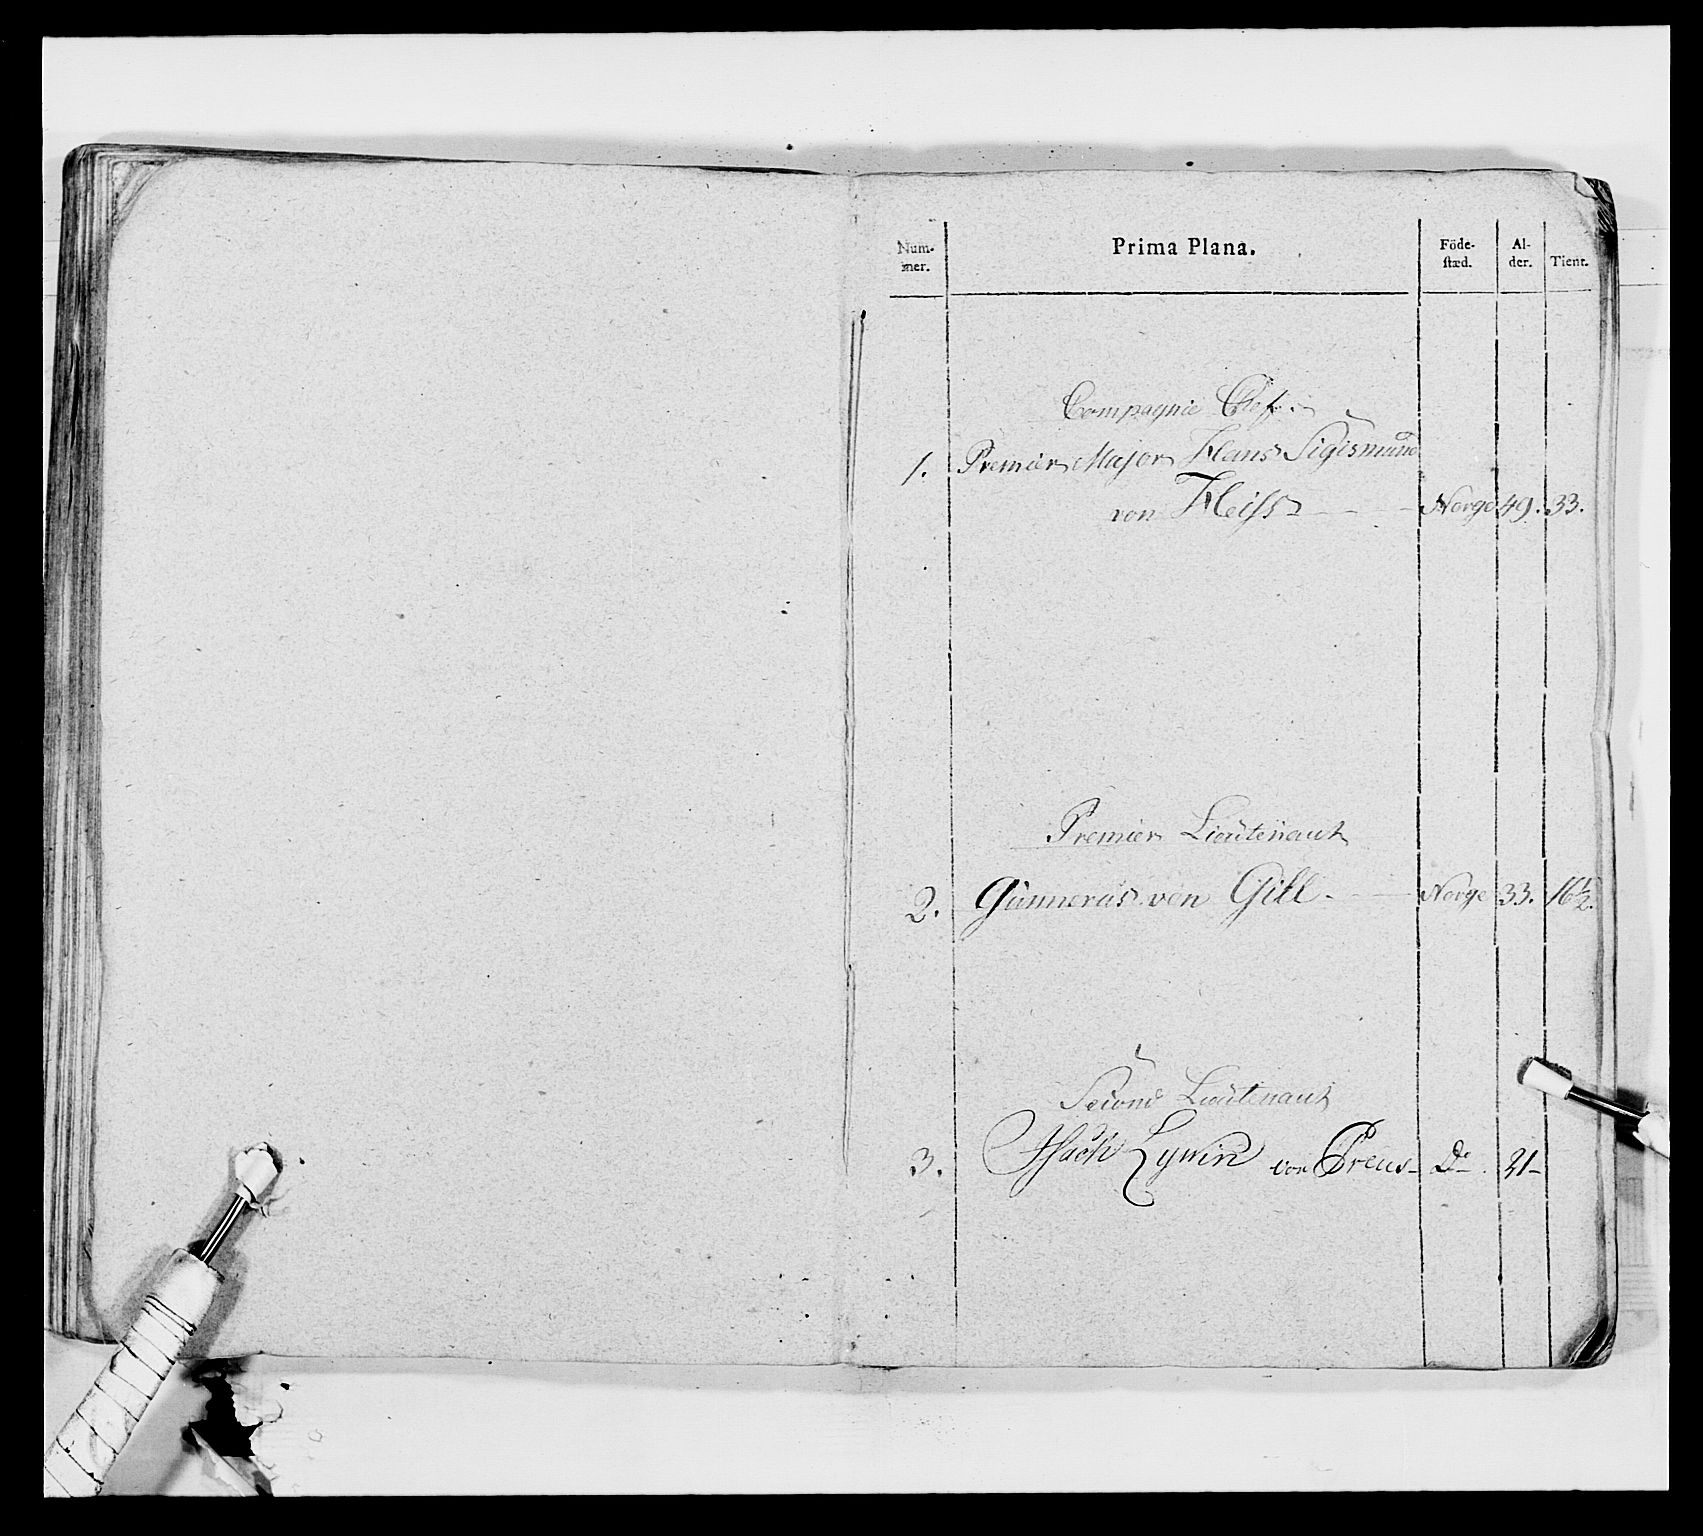 Num-
mer.
Prima Plana.
Föde-
stæd.
Al-
der.
Tient.
Compagnie Chef
1. Premier Major Hans Sigismund
von Heiss Norge 49. 33.
Premier Lieutenant
2. Gunnerus von Gill Norge 33. 16 1/2.
Second Lieutenant
3. Isach von Preus Do 21